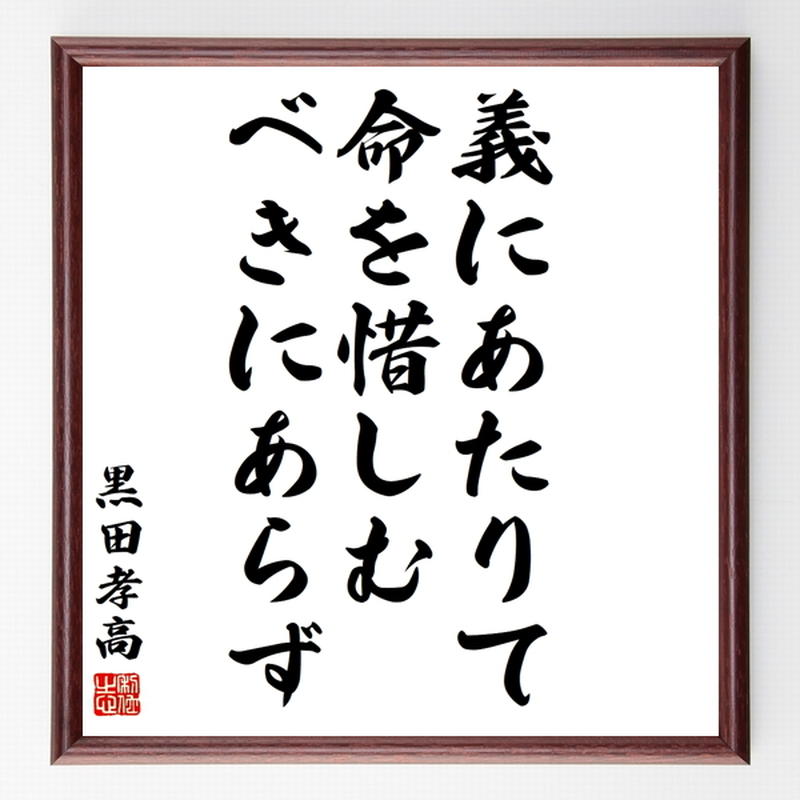 義にあたりて
命を惜しむ
べきにあらず
黒田孝高